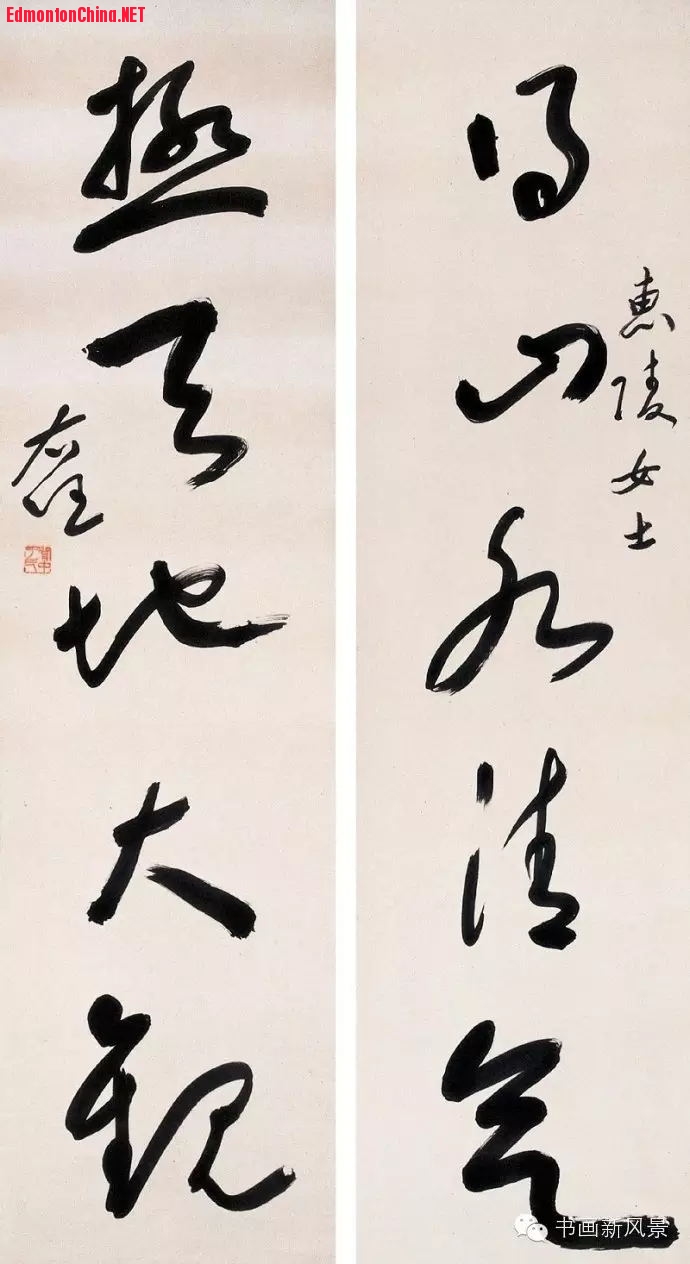 EdmontonChina.NET
得山水清气
惠陵女士
极天地大观
右任
书画新风景